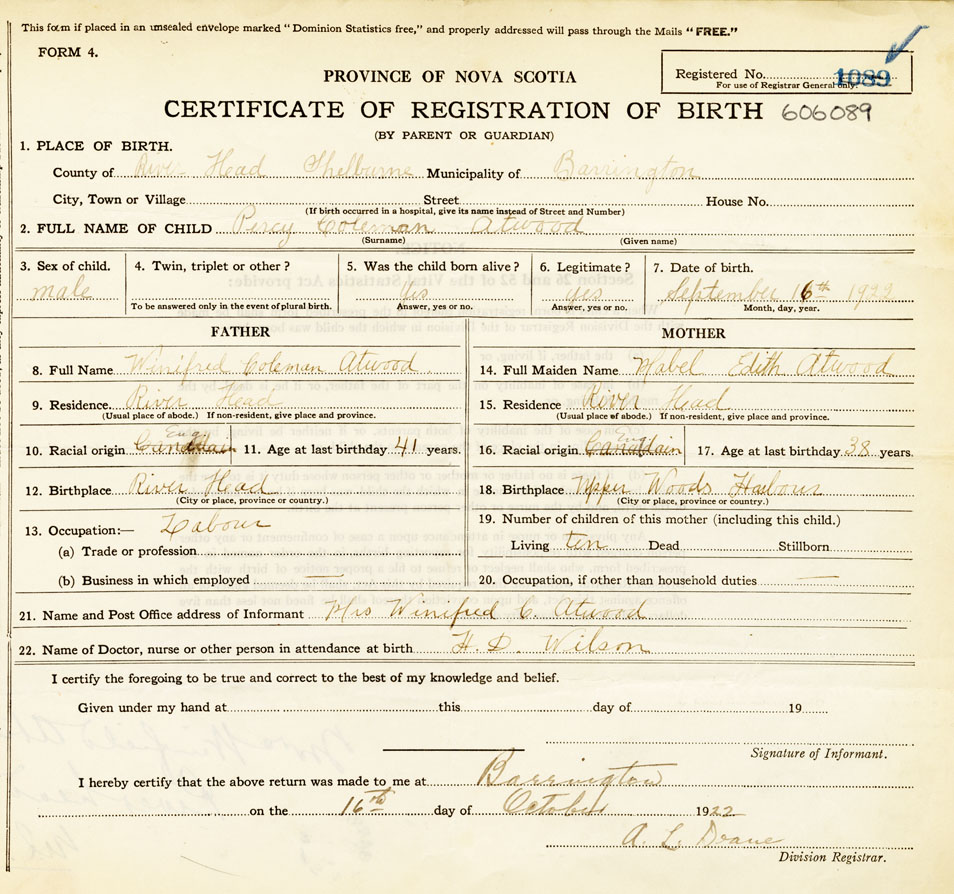 This form if placed in an unsealed envelope marked "Dominion Statistics free," and properly addressed will pass through the Mails "FREE."
FORM 4.
Registered No. 1089
For use of Registrar General only.
PROVINCE OF NOVA SCOTIA
CERTIFICATE OF REGISTRATION OF BIRTH 606089
(BY PARENT OR GUARDIAN)
1. PLACE OF BIRTH.
County of River Head Shelburne Municipality of Barrington
City, Town or Village Street House No.
(If birth occurred in a hospital, give its name instead of Street and Number)
2. FULL NAME OF CHILD Percy Coleman Atwood
(Surname) (Given name)
3. Sex of child. 4. Twin, triplet or other? 5. Was the child born alive? 6. Legitimate? 7. Date of birth.
male yes yes September 16th 1922
To be answered only in the event of plural birth. Answer, yes or no. Answer, yes or no. Month, day, year.
FATHER MOTHER
8. Full Name Winifred Coleman Atwood 14. Full Maiden Name Mabel Edith Atwood
9. Residence River Head 15. Residence River Head
(Usual place of abode.) If non-resident, give place and province. (Usual place of abode.) If non-resident, give place and province.
10. Racial origin 11. Age at last birthday 41 years. 16. Racial origin 17. Age at last birthday 38 years.
12. Birthplace River Head 18. Birthplace Upper Woods Harbour
(City or place, province or country.) (City or place, province or country.)
13. Occupation:— Labour 19. Number of children of this mother (including this child.)
(a) Trade or profession Living ten Dead Stillborn
(b) Business in which employed — 20. Occupation, if other than household duties —
21. Name and Post Office address of Informant Mrs Winifred C. Atwood
22. Name of Doctor, nurse or other person in attendance at birth H. D. Wilson
I certify the foregoing to be true and correct to the best of my knowledge and belief.
Given under my hand at this day of 19
Signature of Informant.
I hereby certify that the above return was made to me at Barrington
on the 16th day of October 1922
A. L. Doane
Division Registrar.